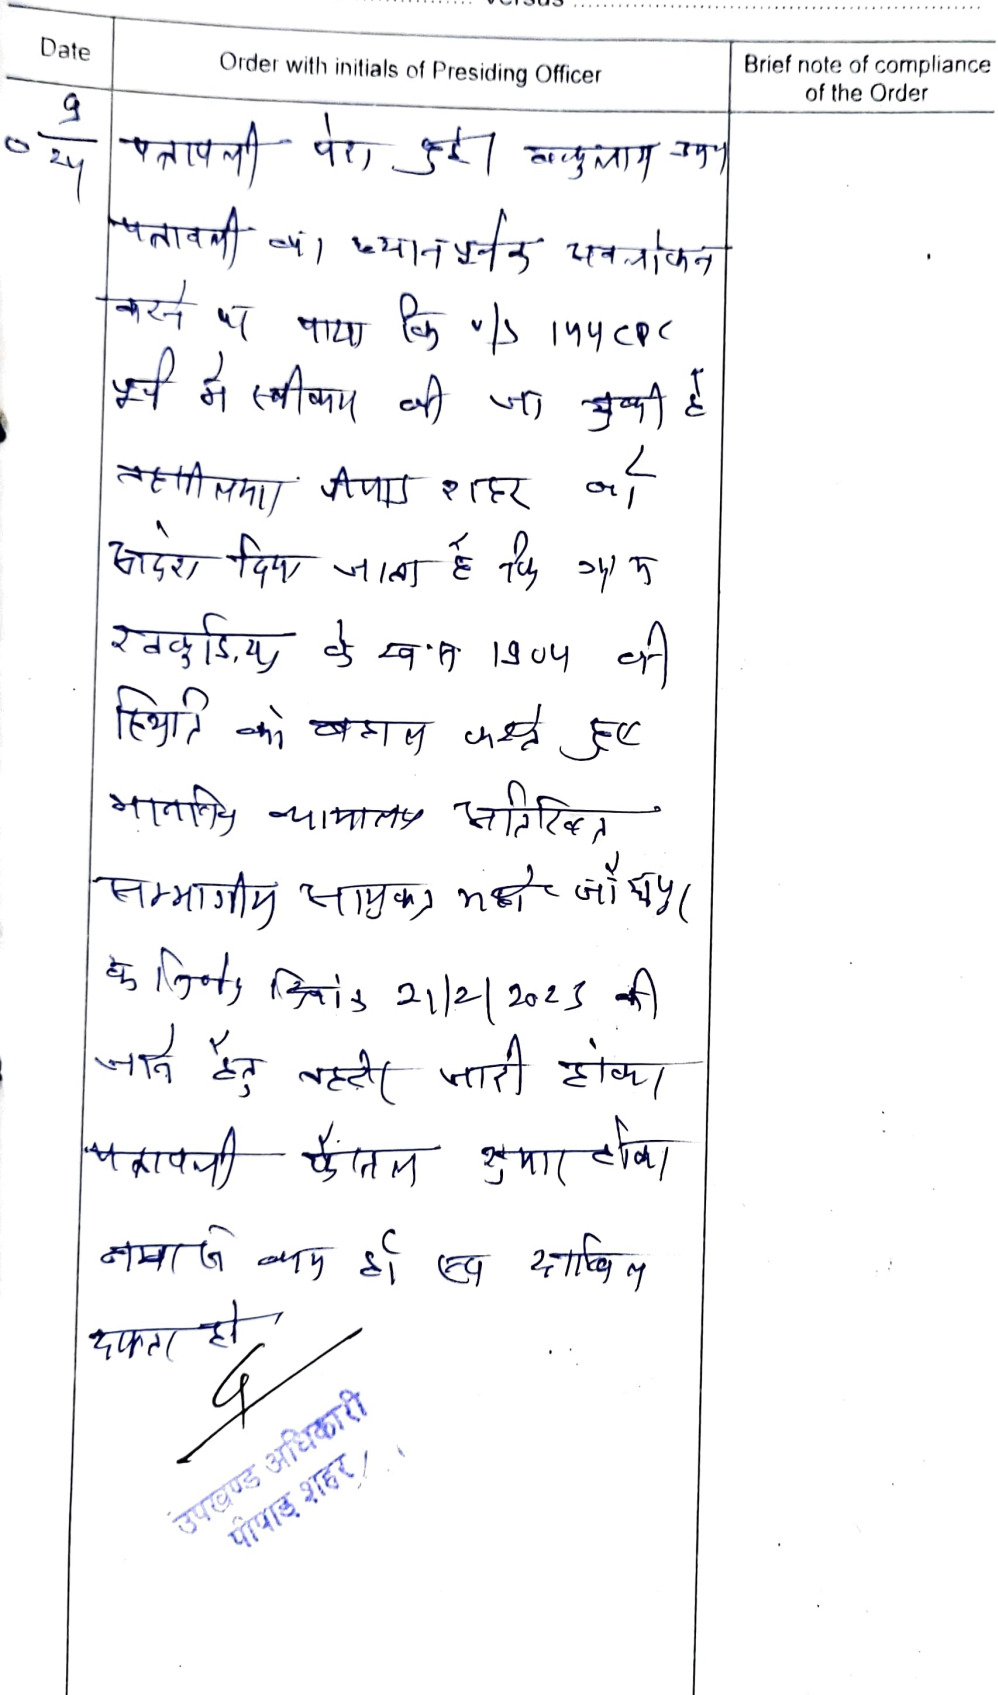 versus
Date
Order with initials of Presiding Officer
Brief note of compliance
of the Order
9
24
पत्रावली पेश हुई।
पत्रावली का ध्यानपूर्वक अवलोकन
करने पर पाया कि u/s 144 CPC
पूर्व में स्वीकार की जा चुकी है
तहसीलदार पीपाड शहर को
आदेश दिया जाता है कि ग्राम
के ख.न. 1904 की
स्थिति को बहाल करते हुए
माननीय न्यायालय अतिरिक्त
सम्भागीय आयुक्त महो. जोधपुर
के निर्णय दिनांक 21/2/2023 की
जाने हेतु तहरीर जारी होकर
पत्रावली फैसल शुमार होकर
नम्बर से कम हो दाखिल
दफ्तर हो
उपखण्ड अधिकारी
पीपाड शहर